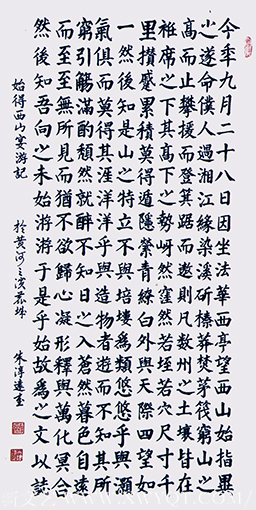 今秊九月二十八日因坐法華西亭望西山始指異
之遂命僕人過湘江緣染溪斫榛莽焚茅筏窮山之
高而止攀援而登箕踞而遨則凡數州之土壤皆在
衽席之下其高下之勢岈然窪然若垤若穴尺寸千
里攢蹙累積莫得遁隱縈青繚白外與天際四望如
一然後知是山之特立不與培塿為類悠悠乎與灝
氣俱而莫得其涯洋洋乎與造物者遊而不知其所
窮引觴滿酌頹然就醉不知日之入蒼然暮色自遠
而至至無所見而猶不欲歸心凝形釋與萬化冥合
然後知吾向之未始游游于是乎始故為之文以誌
始得西山宴游記 於黃河之濱 朱淳